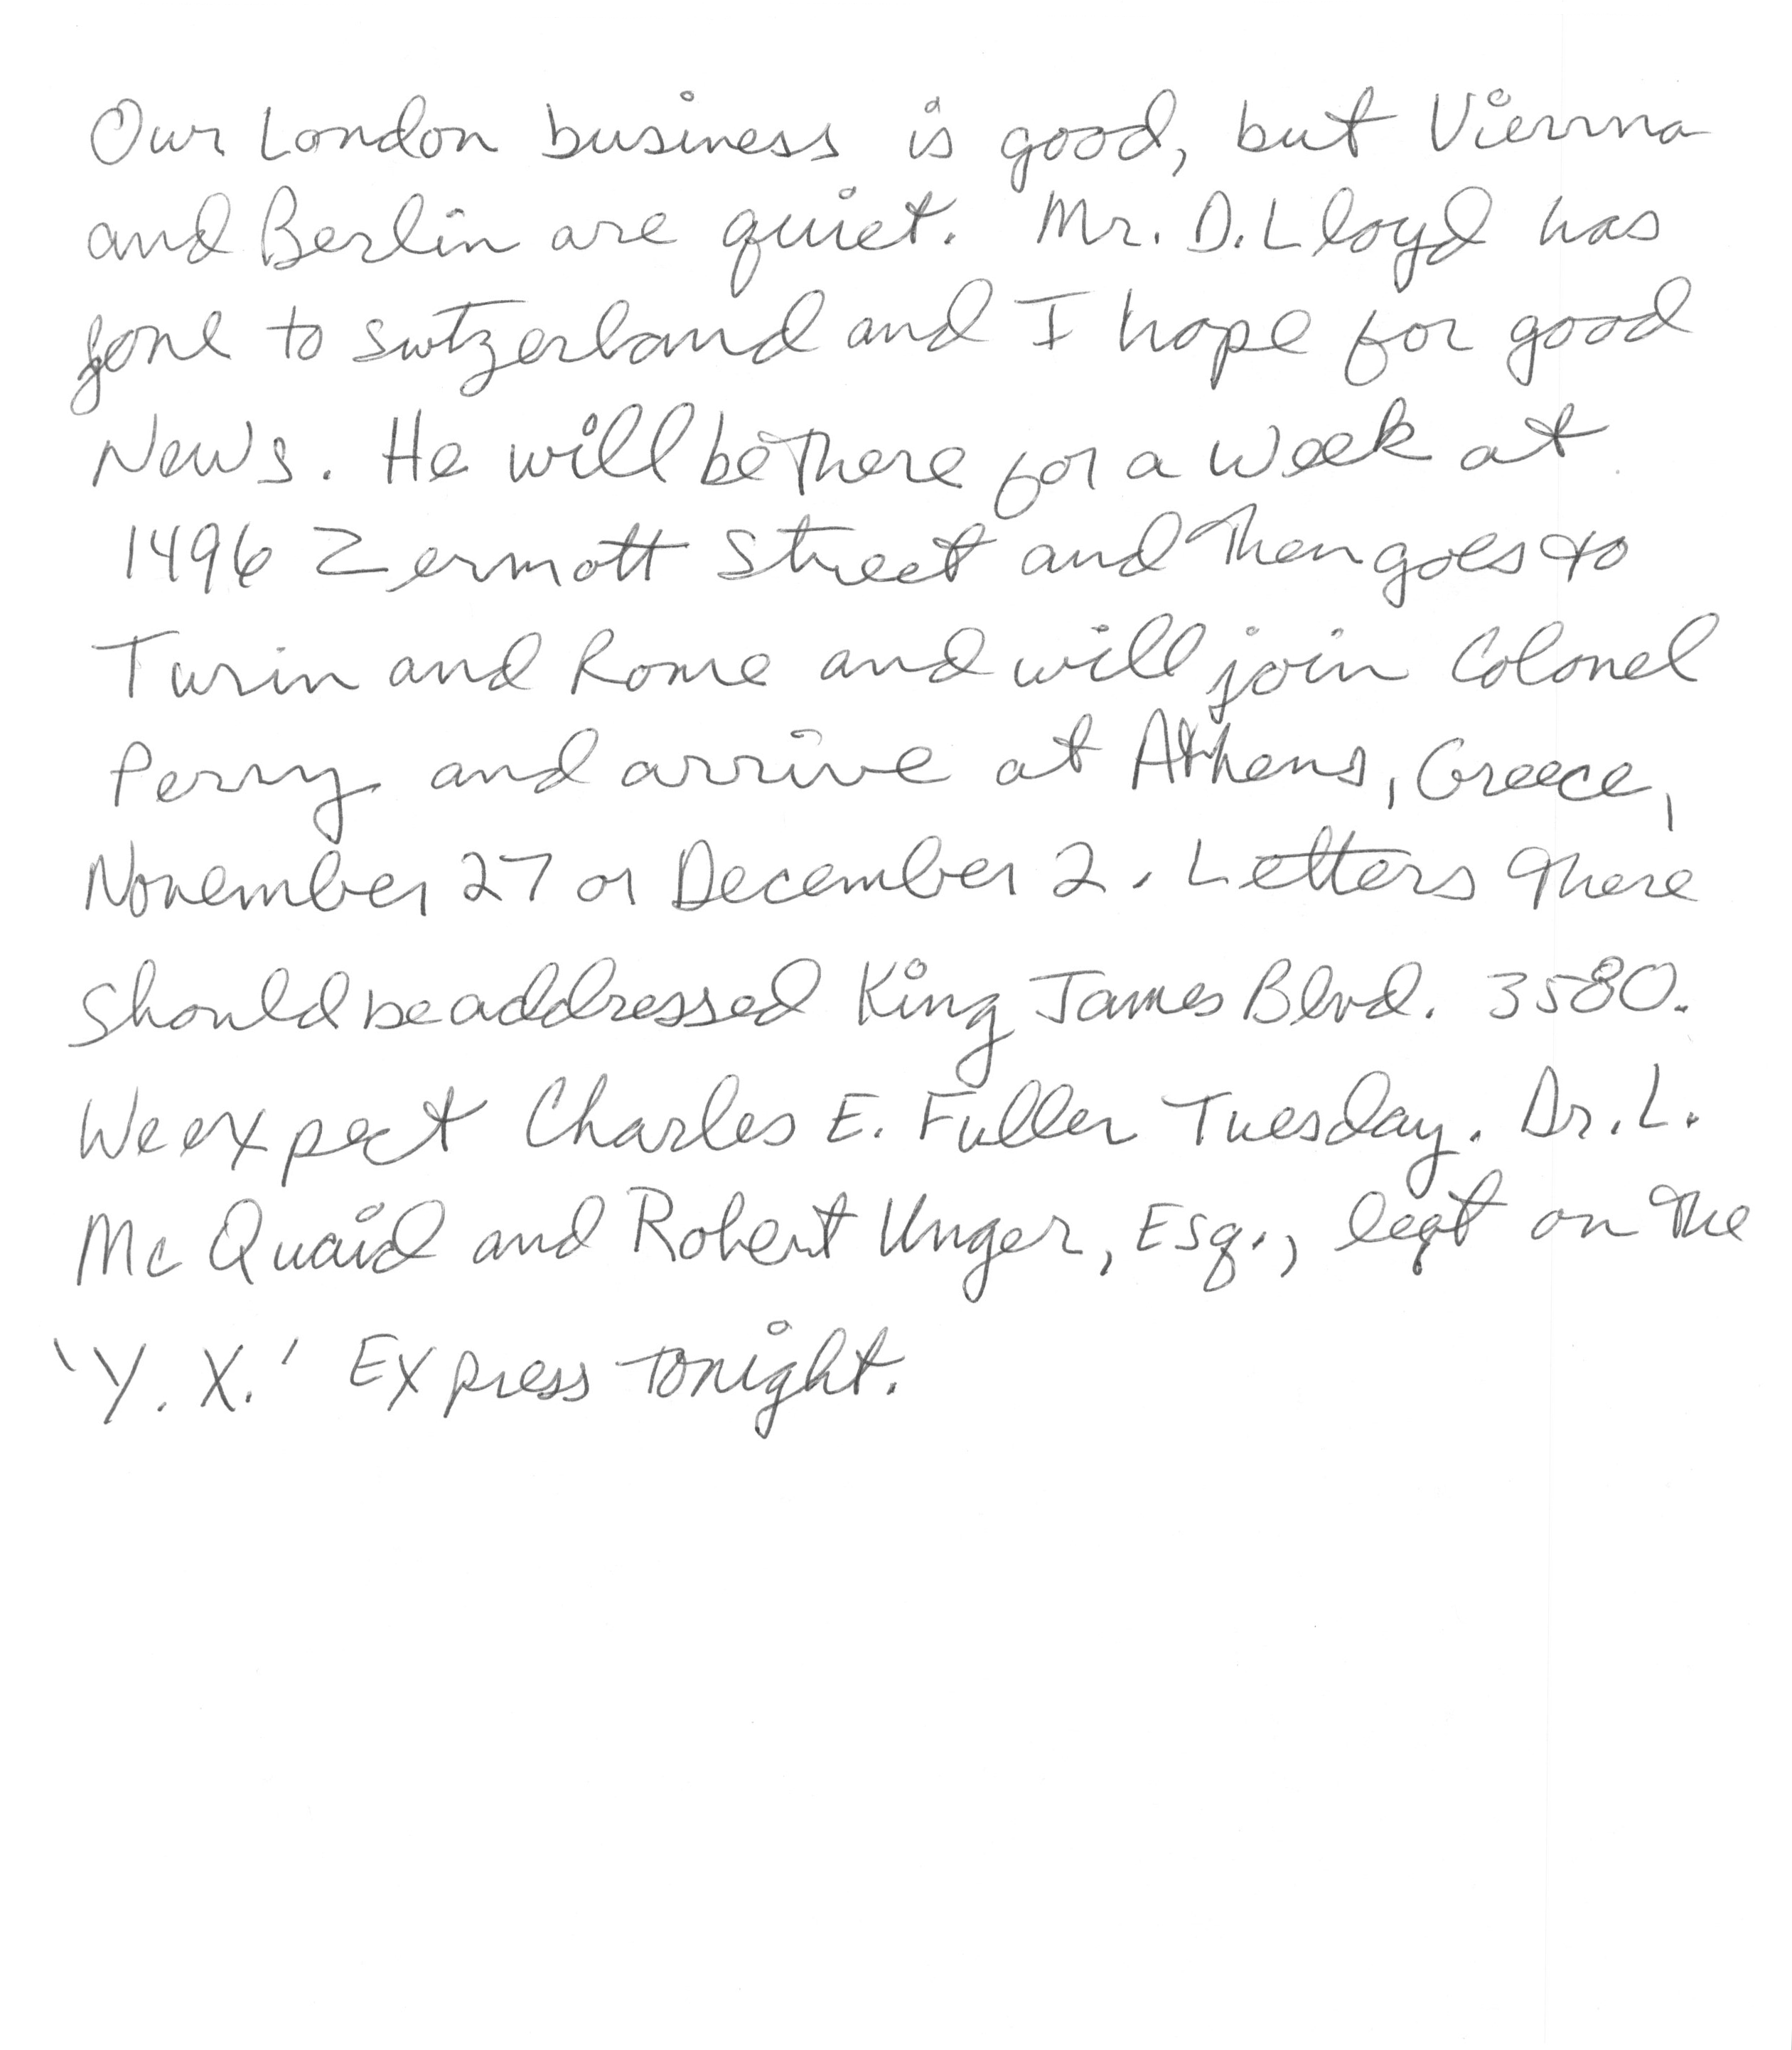 Our London business is good, but Vienna
and Berlin are quiet. Mr. D. Lloyd has
gone to Switzerland and I hope for good
News. He will be there for a week at
1496 Zermott Street and then goes to
Turin and Rome and will join Colonel
Perry and arrive at Athens, Greece,
November 27 or December 2. Letters there
should be addressed King James Blvd. 3580.
We expect Charles E. Fuller Tuesday. Dr. L.
McQuaid and Robert Unger, Esq., left on the
'Y. X.' Express tonight.